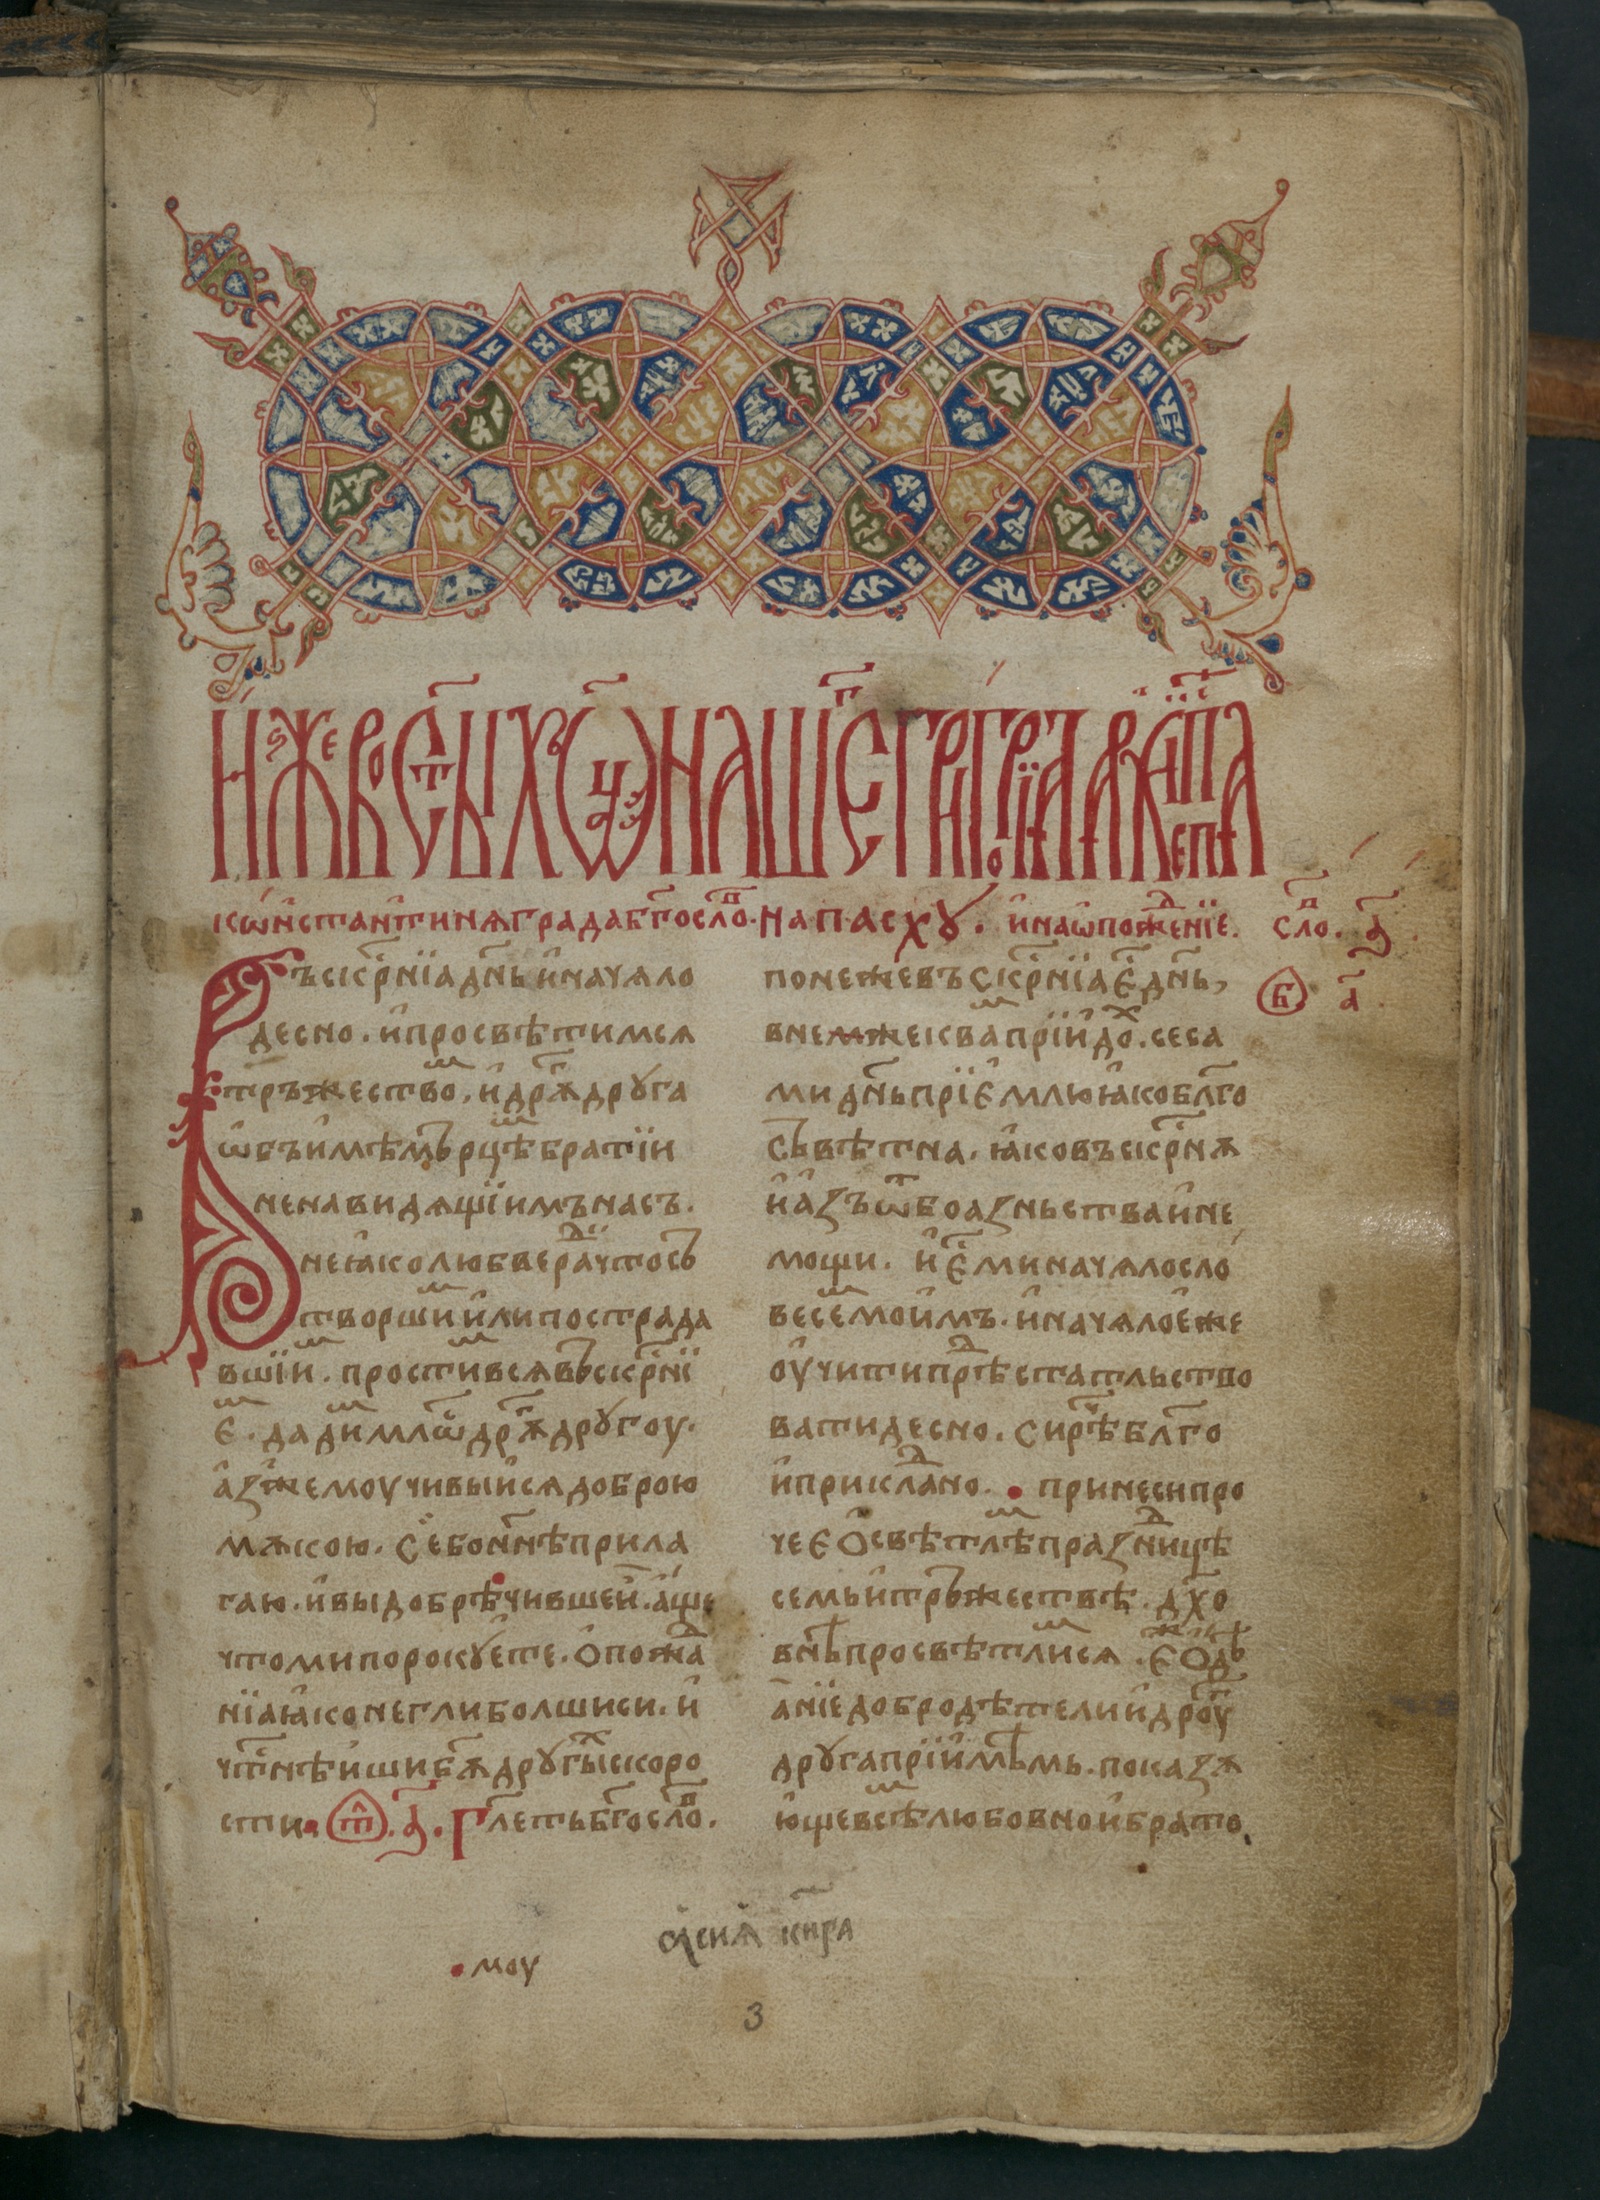 И҆же въ ст҃ы́хъ ѿц҃а на́шего григо́рїа а҆рхїеп҃кпа
кѡ҆нстан҆тинѧграда бг҃осло́ⷡ. на пасхꙋ. и҆ на ѡ҆поже́нїе. сло́ⷡ. а҃.
ъскрⷭ҇нїа дн҃ь и҆ начѧло
десно. и҆ просвѣтимсѧ
тръжествоⷨ, и҆ дрꙋⷢ҇ дрꙋга
ѡ҆бъи҆мѣмъ рцѣⷨ братїи
ненавидѧщїимъ насъ.
не ꙗ҆ко любве раⷣ что съ
творшиⷨ и҆ли пострада
вшїиⷨ. простиⷨ всѧ въскрⷭ҇нї
еⷨ. дадиⷨ млⷭ҇ть дрꙋⷢ҇ дрꙋгоу.
а҆зже моучивыи҆сѧ доброю
мѫкою. се бо нн҃ѣ прила
гаю. и҆ вы добрѣ чⷭ҇ившеи҆. а҆ще
что ми порокꙋете. ѻ҆ пожⷣа
нїа ꙗ҆ко негли болши си. и҆
чⷭ҇тнѣиши бг҃ꙋ дрꙋгыⷯ скоро
сти. т҃. а҃. Глⷭ҇еть бг҃осло́ⷡ.
б҃ а҃.
понеже въскрⷭ҇нїа е҆ дн҃ь,
внемже ксваⷨ прїидоⷯ. себа
ми дн҃ь прїе҆млю ꙗ҆ко блг҃о
съвѣтна. ꙗ҆ко въскрⷭ҇нѫ
и҆ а҆зъ ѿ боазньства и҆ не
мощи. и҆ еⷭ҇ ми начѧло сло
весеⷨ мои҆мъ. и҆ начѧло е҆же
ѹчити прⷣѣстательство
вати десно. сирѣⷱ҇ блг҃о
и҆ приклаⷣно. принеси про
чее ѻ҆ свѣтлѣⷨ празⷣницѣ
семь и҆ тръжествѣ. дх҃о
внѣ просвѣтлиⷨсѧ. 
а҆нїе добродѣтелии҆ дрꙋⷢ҇
дрꙋга прїимѣмь. показѫ
ю҆ще всѣⷨ любовно и҆ брато
моу
сїѧ кни҃га
3